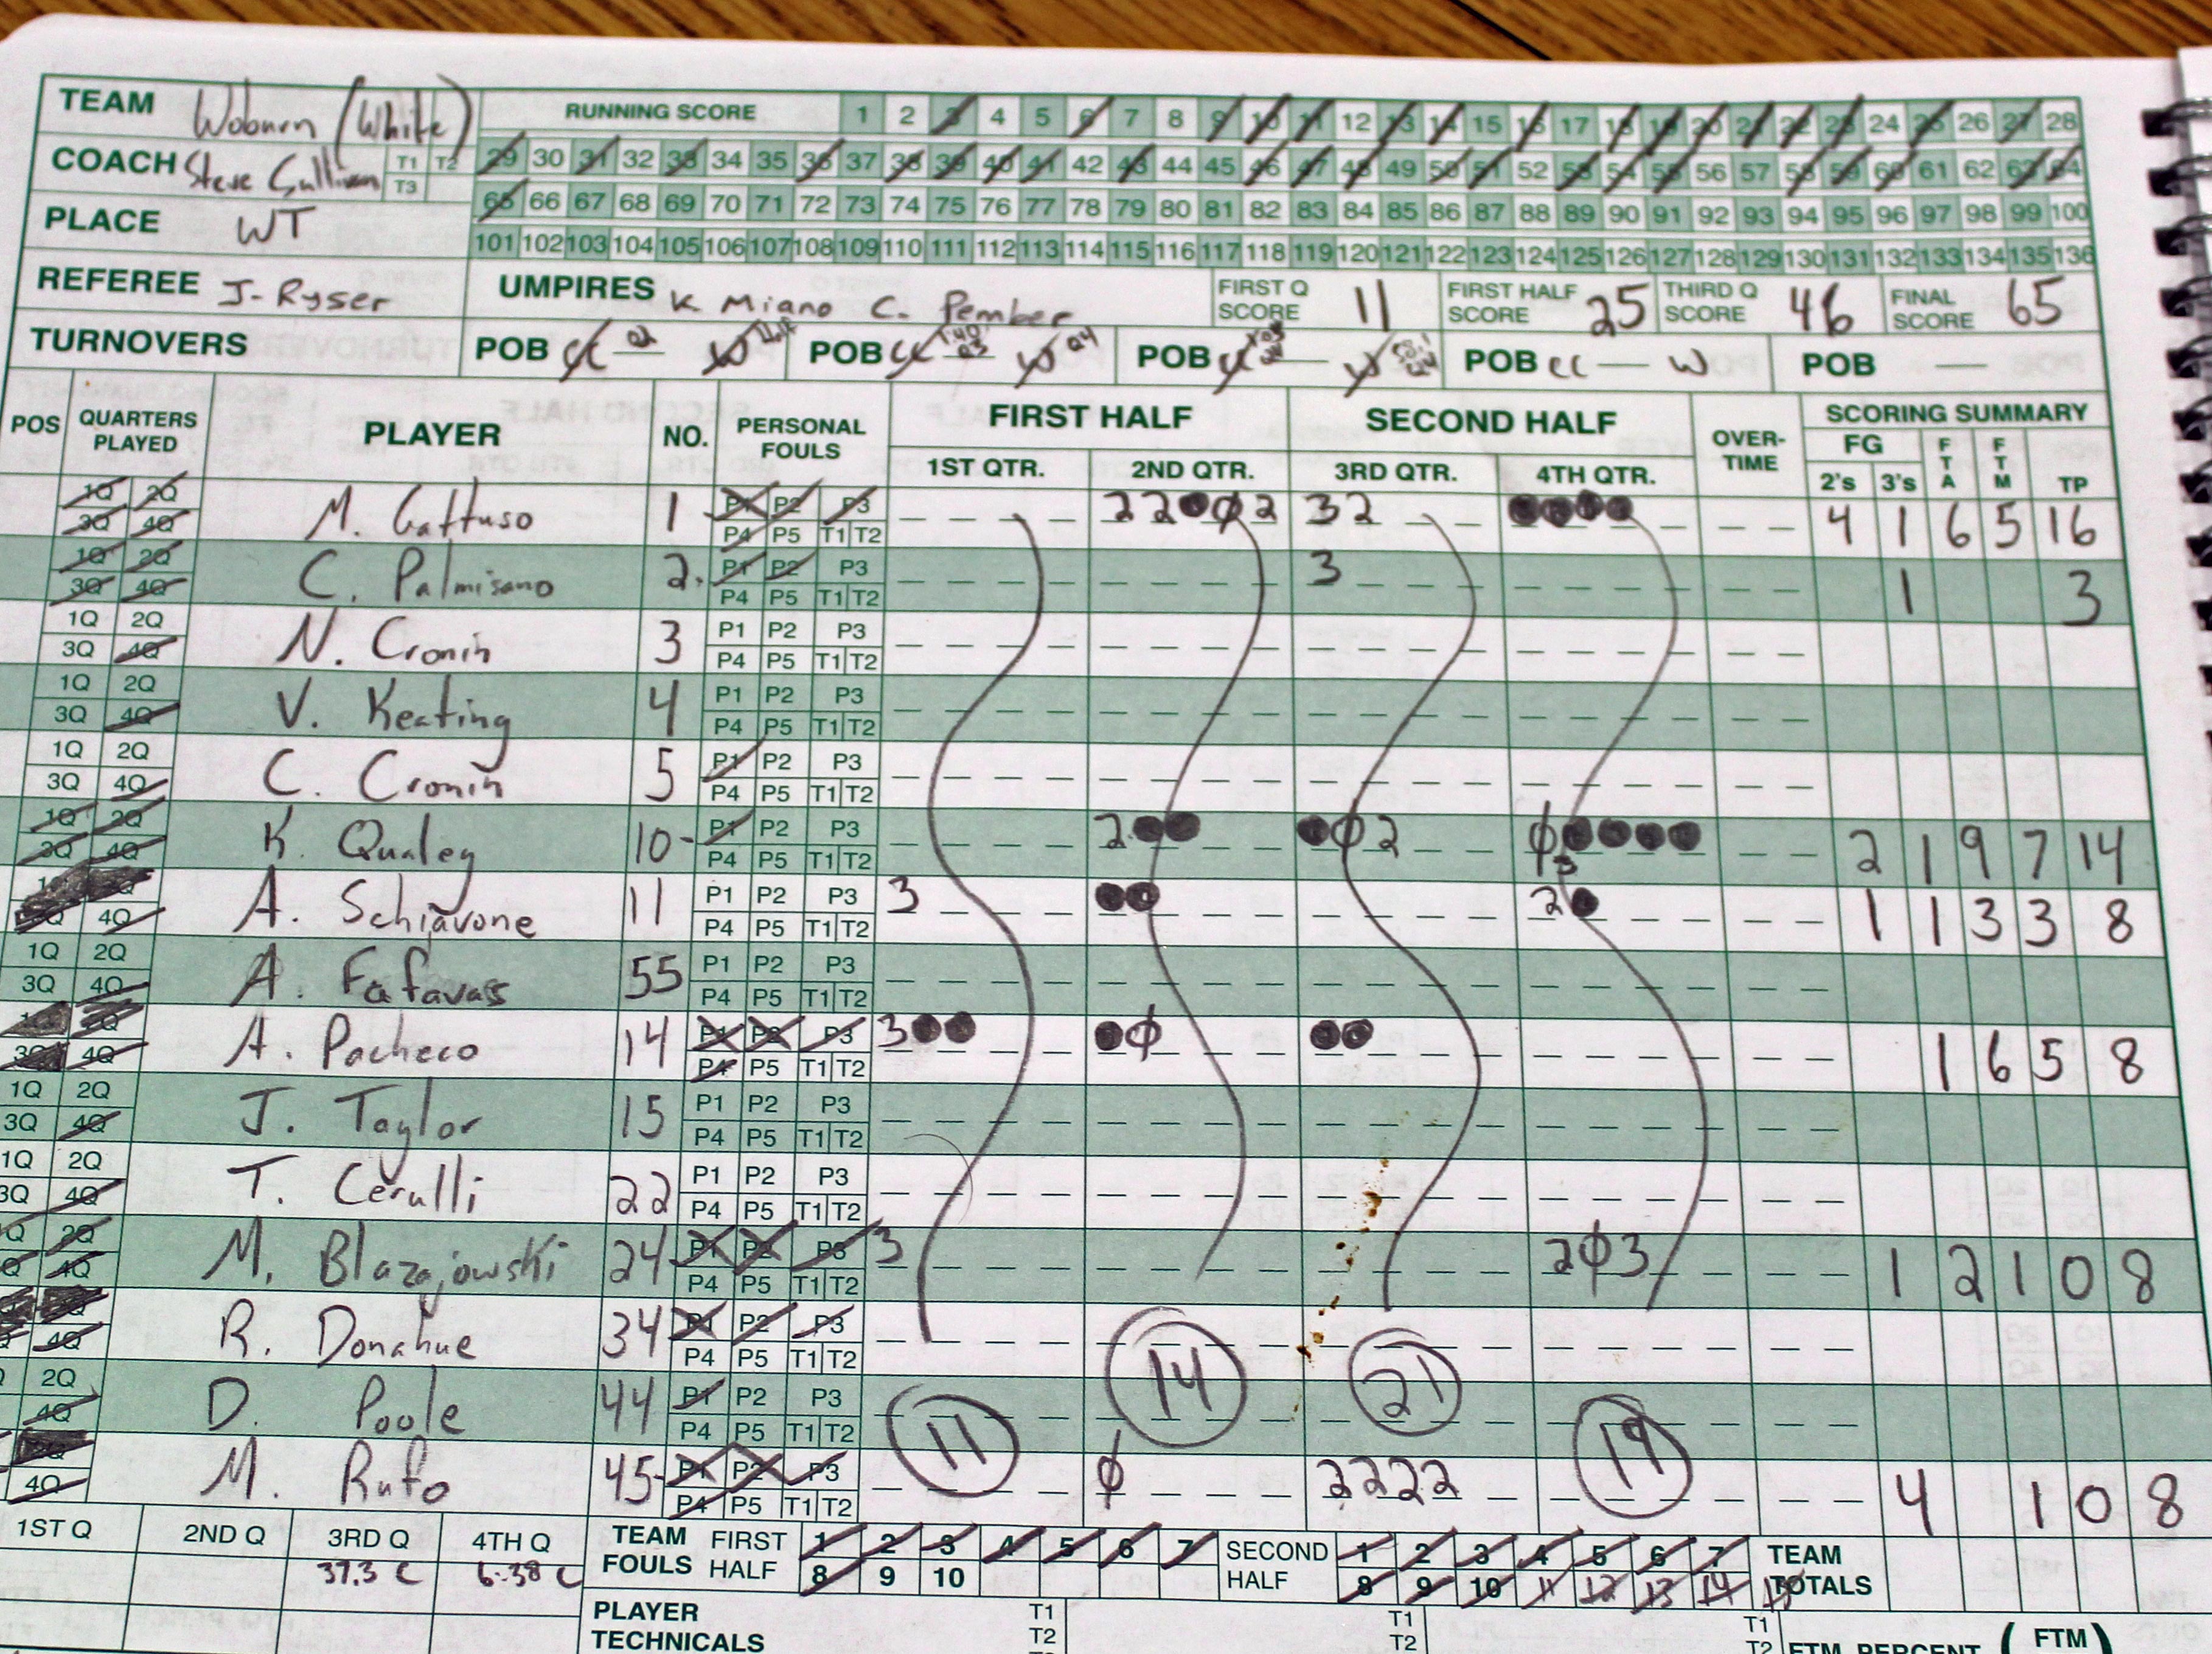 TEAM Woburn (White)
RUNNING SCORE 1 2 3 4 5 6 7 8 9 10 11 12 13 14 15 16 17 18 19 20 21 22 23 24 25 26 27 28
COACH Steve Sullivan T1 T2 T3
29 30 31 32 33 34 35 36 37 38 39 40 41 42 43 44 45 46 47 48 49 50 51 52 53 54 55 56 57 58 59 60 61 62 63 64
65 66 67 68 69 70 71 72 73 74 75 76 77 78 79 80 81 82 83 84 85 86 87 88 89 90 91 92 93 94 95 96 97 98 99 100
PLACE WT
101 102 103 104 105 106 107 108 109 110 111 112 113 114 115 116 117 118 119 120 121 122 123 124 125 126 127 128 129 130 131 132 133 134 135 136
REFEREE J-Ryser
UMPIRES K Miano C. Pember
FIRST Q SCORE 11
FIRST HALF SCORE 25
THIRD Q SCORE 46
FINAL SCORE 65
TURNOVERS POB cc — W POB cc — W POB cc — W POB cc — W POB —
POS QUARTERS PLAYED PLAYER NO. PERSONAL FOULS FIRST HALF SECOND HALF OVER-TIME SCORING SUMMARY
1ST QTR. 2ND QTR. 3RD QTR. 4TH QTR. FG 2's 3's FTA FTM TP
1Q 2Q M. Gattuso 1 P1 P2 P3 22 2 32 4 1 6 5 16
3Q 4Q P4 P5 T1 T2
1Q 2Q C. Palmisano 2. P1 P2 P3 3 1 3
3Q 4Q P4 P5 T1 T2
1Q 2Q N. Cronin 3 P1 P2 P3
3Q 4Q P4 P5 T1 T2
1Q 2Q V. Keating 4 P1 P2 P3
3Q 4Q P4 P5 T1 T2
1Q 2Q C. Cronin 5 P1 P2 P3
3Q 4Q P4 P5 T1 T2
1Q 2Q K. Qualey 10- P1 P2 P3 2 2 3 2 1 9 7 14
3Q 4Q P4 P5 T1 T2
A. Schiavone 11 P1 P2 P3 3 2 1 1 3 3 8
4Q P4 P5 T1 T2
1Q 2Q A. Fafavas 55 P1 P2 P3
3Q 4Q P4 P5 T1 T2
A. Pacheco 14 P1 P2 P3 3 1 6 5 8
3Q 4Q P4 P5 T1 T2
1Q 2Q J. Taylor 15 P1 P2 P3
3Q 4Q P4 P5 T1 T2
1Q 2Q T. Cerulli 22 P1 P2 P3
3Q 4Q P4 P5 T1 T2
Q 2Q M. Blazajowski 24 P1 P2 P3 3 2 3 1 2 1 0 8
Q 4Q P4 P5 T1 T2
R. Donahue 34 P1 P2 P3
4Q P4 P5 T1 T2
2Q D. Poole 44 P1 P2 P3 11 14 21 19
4Q P4 P5 T1 T2
M. Rufo 45- P1 P2 P3 2222 4 1 0 8
4Q P4 P5 T1 T2
1ST Q 2ND Q 3RD Q 4TH Q
37.3 C 6:38 C
TEAM FOULS FIRST HALF 1 2 3 4 5 6 7 8 9 10
SECOND HALF 1 2 3 4 5 6 7 8 9 10 11 12 13 14 15
TEAM TOTALS
PLAYER TECHNICALS T1 T2 T1 T2 T1 T2
FTM PERCENT (FTM)